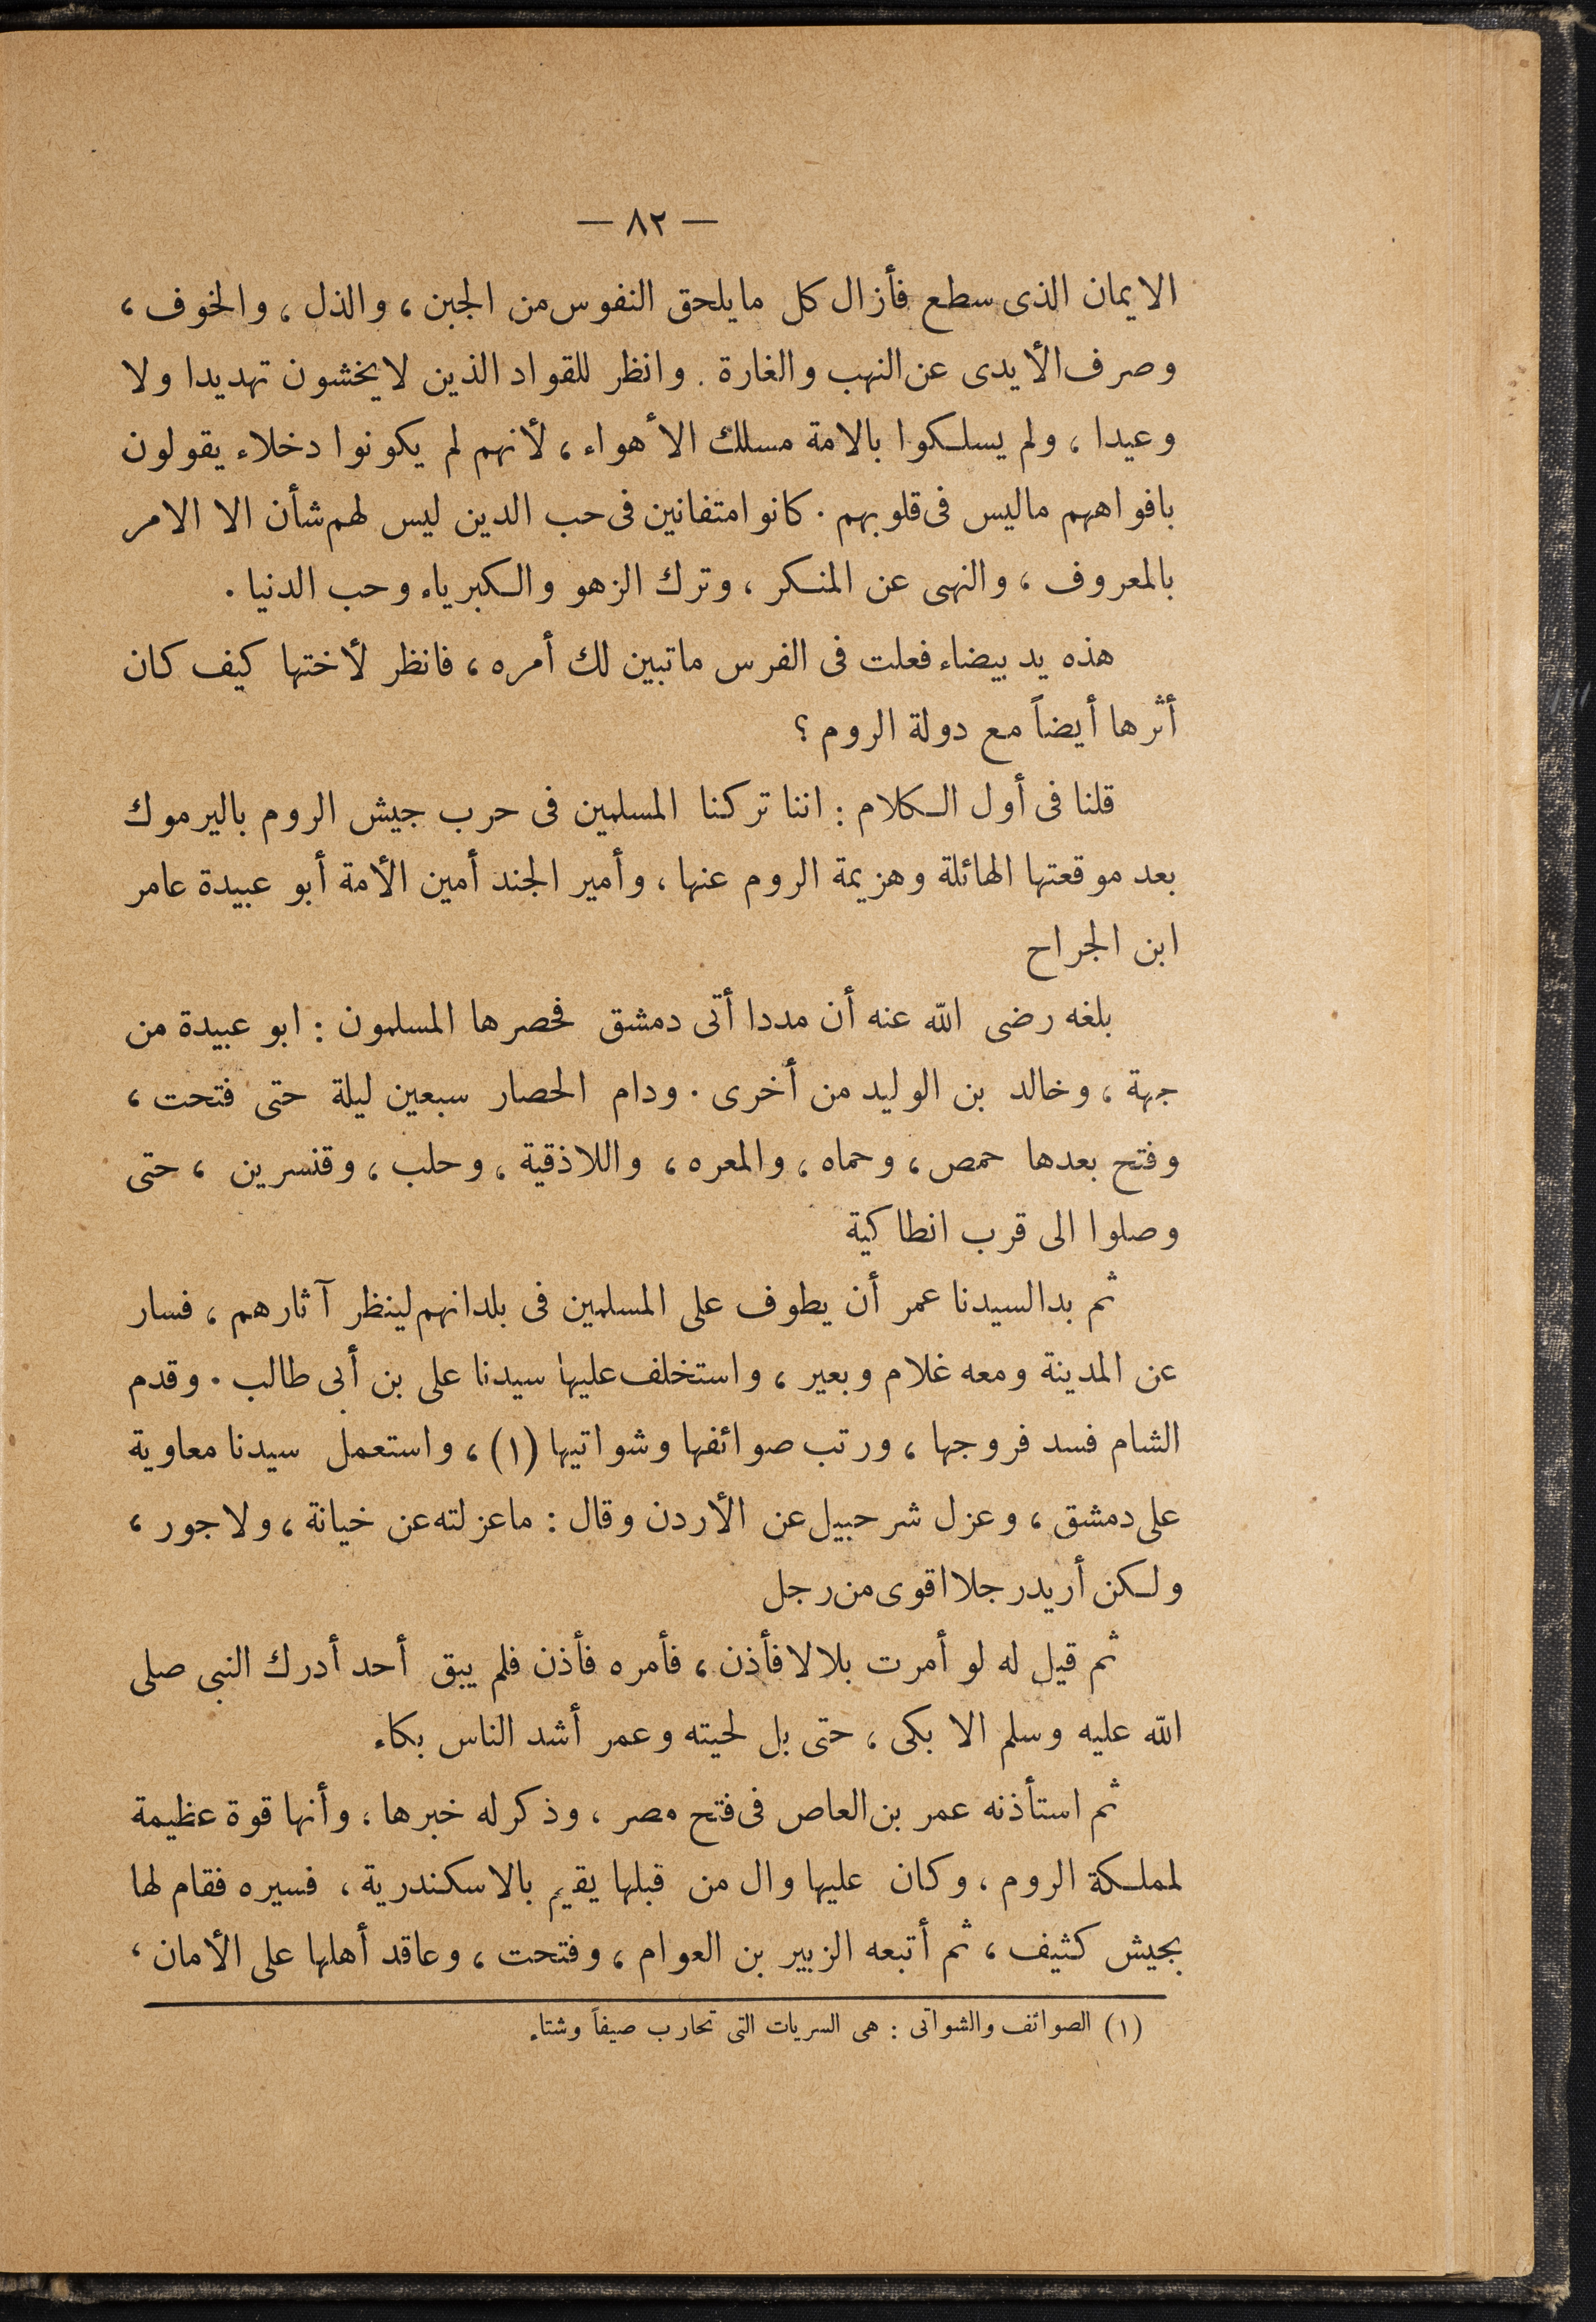 — ٨٢ —
الايمان الذى سطع فأزال كل مايلحق النفوس من الجبن ، والذل ، والخوف ،
وصرف الأيدى عن النهب والغارة . وانظر للقواد الذين لايخشون تهديدا ولا
وعيدا ، ولم يسلكوا بالامة مسلك الأهواء ، لأنهم لم يكونوا دخلاء يقولون
بافواههم ماليس فى قلوبهم . كانوا متفانين فى حب الدين ليس لهم شأن الا الامر
بالمعروف ، والنهى عن المنكر ، وترك الزهو والكبرياء وحب الدنيا .
هذه يد بيضاء فعلت فى الفرس ماتبين لك أمره ، فانظر لأختها كيف كان
أثرها أيضاً مع دولة الروم ؟
قلنا فى أول الكلام : اننا تركنا المسلمين فى حرب جيش الروم باليرموك
بعد موقعتها الهائلة وهزيمة الروم عنها ، وأمير الجند أمين الأمة أبو عبيدة عامر
ابن الجراح
بلغه رضى الله عنه أن مددا أتى دمشق فحصرها المسلمون : ابو عبيدة من
جهة ، وخالد بن الوليد من أخرى . ودام الحصار سبعين ليلة حتى فتحت ،
وفتح بعدها حمص ، وحماه ، والمعره ، واللاذقية ، وحلب ، وقنسرين ، حتى
وصلوا الى قرب انطاكية
ثم بدالسيدنا عمر أن يطوف على المسلمين فى بلدانهم لينظر آثارهم ، فسار
عن المدينة ومعه غلام وبعير ، واستخلف عليها سيدنا على بن أبى طالب . وقدم
الشام فسد فروجها ، ورتب صوائفها وشواتيها (١) ، واستعمل سيدنا معاوية
على دمشق ، وعزل شرحبيل عن الأردن وقال : ماعزلته عن خيانة ، ولا جور ،
ولكن أريد رجلا اقوى من رجل
ثم قيل له لو أمرت بلالا فأذن ، فأمره فأذن فلم يبق أحد أدرك النبى صلى
الله عليه وسلم الا بكى ، حتى بل لحيته وعمر أشد الناس بكاء
ثم استأذنه عمر بن العاص فى فتح مصر ، وذكر له خبرها ، وأنها قوة عظيمة
لمملكة الروم ، وكان عليها وال من قبلها يقيم بالاسكندرية ، فسيره فقام لها
بجيش كثيف ، ثم أتبعه الزبير بن العوام ، وفتحت ، وعاقد أهلها على الأمان ،
(١) الصوائف والشواتى : هى السريات التى تحارب صيفاً وشتاء